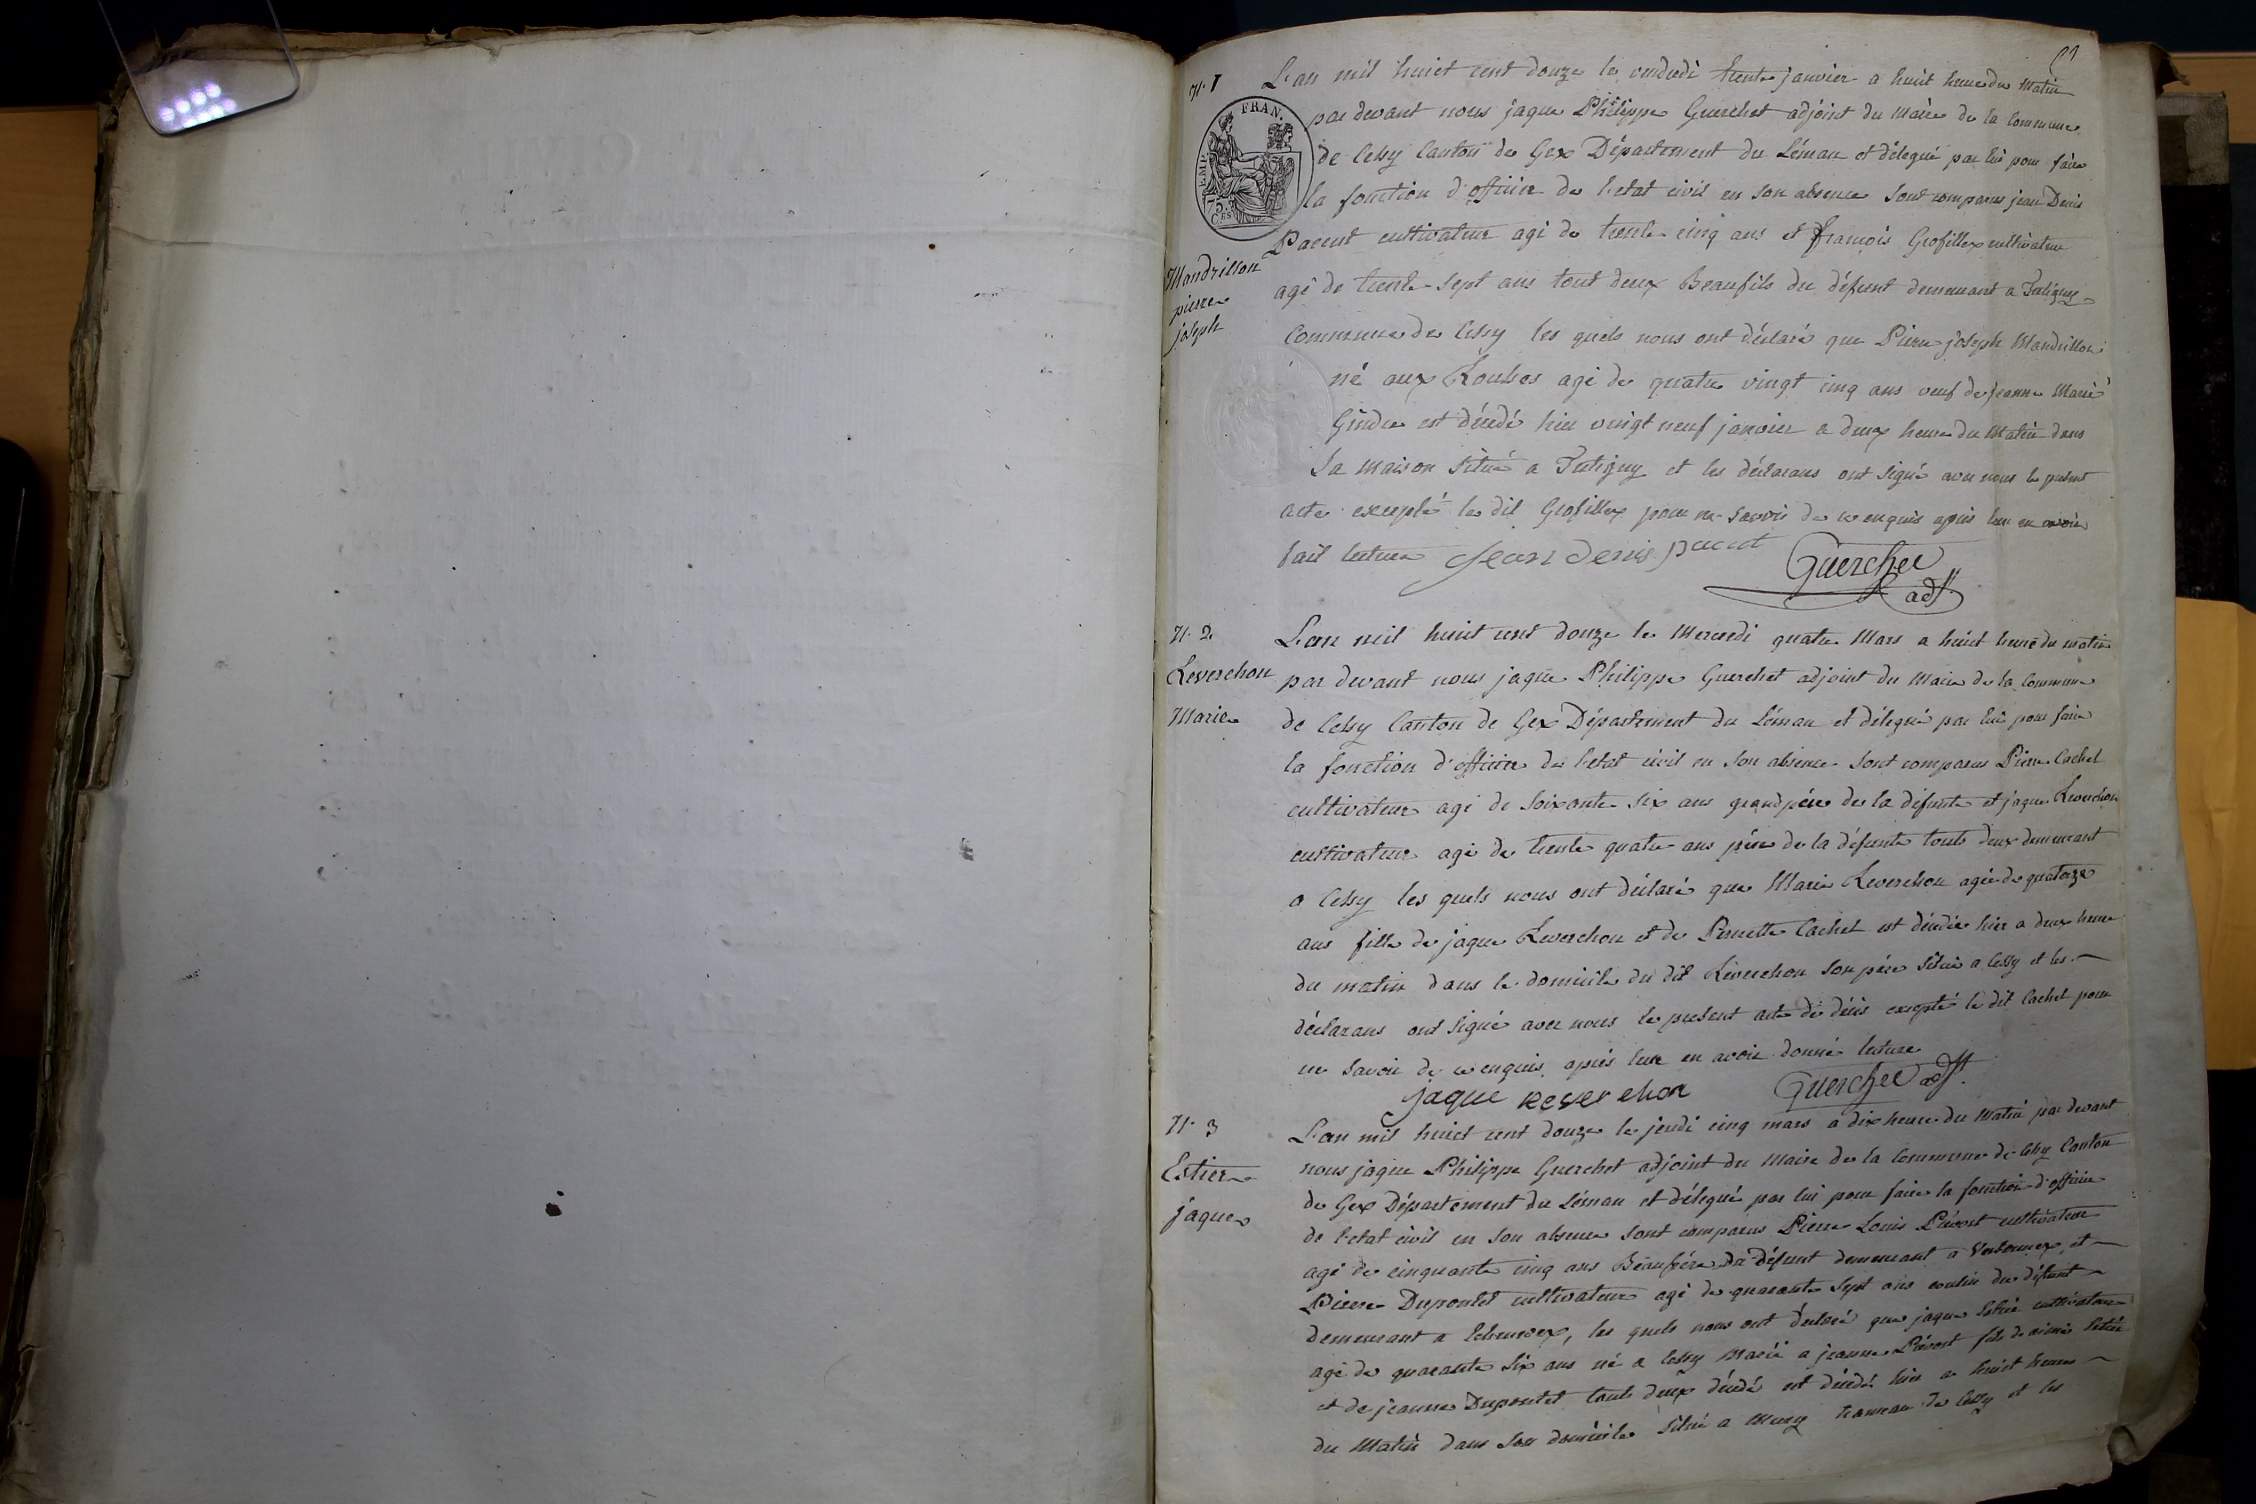 N. 1
L'an mil huict cent douze le vendredi trente janvier a huit heure du Matin
par devant nous jaque Philippe Guerchet adjoint du Maire de la Commune
FRAN.
EMP.
75. C.ES
de Cessy Canton de Gex Département du Léman et délegué par lui pour faire
la fonction d'officier de l'etat civil en son absence sont comparus jean Denis
Parent cultivateur agé de trente cinq ans et françois Grosfillex cultivateur
Mandrillon
pierre
joseph
agé de trente sept ans tout deux Beaufils du défunt demeurant a Tutigny
Commune de Cessy les quels nous ont déclaré que Pierre joseph Mandrillon
né aux Rousses agé de quatre vingt cinq ans veuf de jeanne Marie
Gindre est décédé hier vingt neuf janvier a deux heure du Matin dans
sa maison situé a Tutigny et les déclarans ont signé avec nous le present
acte excepté le dit Grosfillex pour ne savoir de ce enquis après leur en avoir
fait lecture jean denis parent
Guerchet
adj.t
N. 2
L'an mil huict cent douze le Mercredi quatre Mars a huict heure du matin
Reverchon
Marie
par devant nous jaque Philippe Guerchet adjoint du Maire de la Commune
de Cessy Canton de Gex Département du Léman et délegué par lui pour faire
la fonction d'officier de l'etat civil en son absence sont comparus Pierre Cachet
cultivateur agé de soixante six ans grandpére de la défunte et jaque Reverchon
cultivateur agé de trente quatre ans pére de la défunte touts deux demeurant
a Cessy les quels nous ont déclaré que Marie Reverchon agée de quatorze
ans fille de jaque Reverchon et de Pernette Cachet est décédée hier a deux heure
du matin dans le domicile du dit Reverchon son pére situé a Cessy et les
déclarans ont signé avec nous le present acte de décès excepté le dit Cachet pour
ne savoir de ce enquis après leur en avoir donné lecture
jaque reverchon Guerchet adj.t
N. 3
Estier
jaque
L'an mil huict cent douze le jeudi cinq mars a dix heure du Matin par devant
nous jaque Philippe Guerchet adjoint du Maire de la Commune de Cessy Canton
de Gex Département du Léman et délegué par lui pour faire la fonction d'officier
de l'etat civil en son absence sont comparus Pierre Louis Prévost cultivateur
agé de cinquante cinq ans Beaufrére du défunt demeurant a Vesenex, et
Pierre Dupontet cultivateur agé de quarante sept ans cousin du défunt
demeurant a Echenevex, les quels nous ont déclaré que jaque Estier cultivateur
agé de quarante six ans né a Cessy Marié a jeanne Prévost fils de aimé Estier
et de jeanne Dupontet touts deux décédé est décédé hier a huict heure
du Matin dans son domicile situé a Mury hameau de Cessy et les